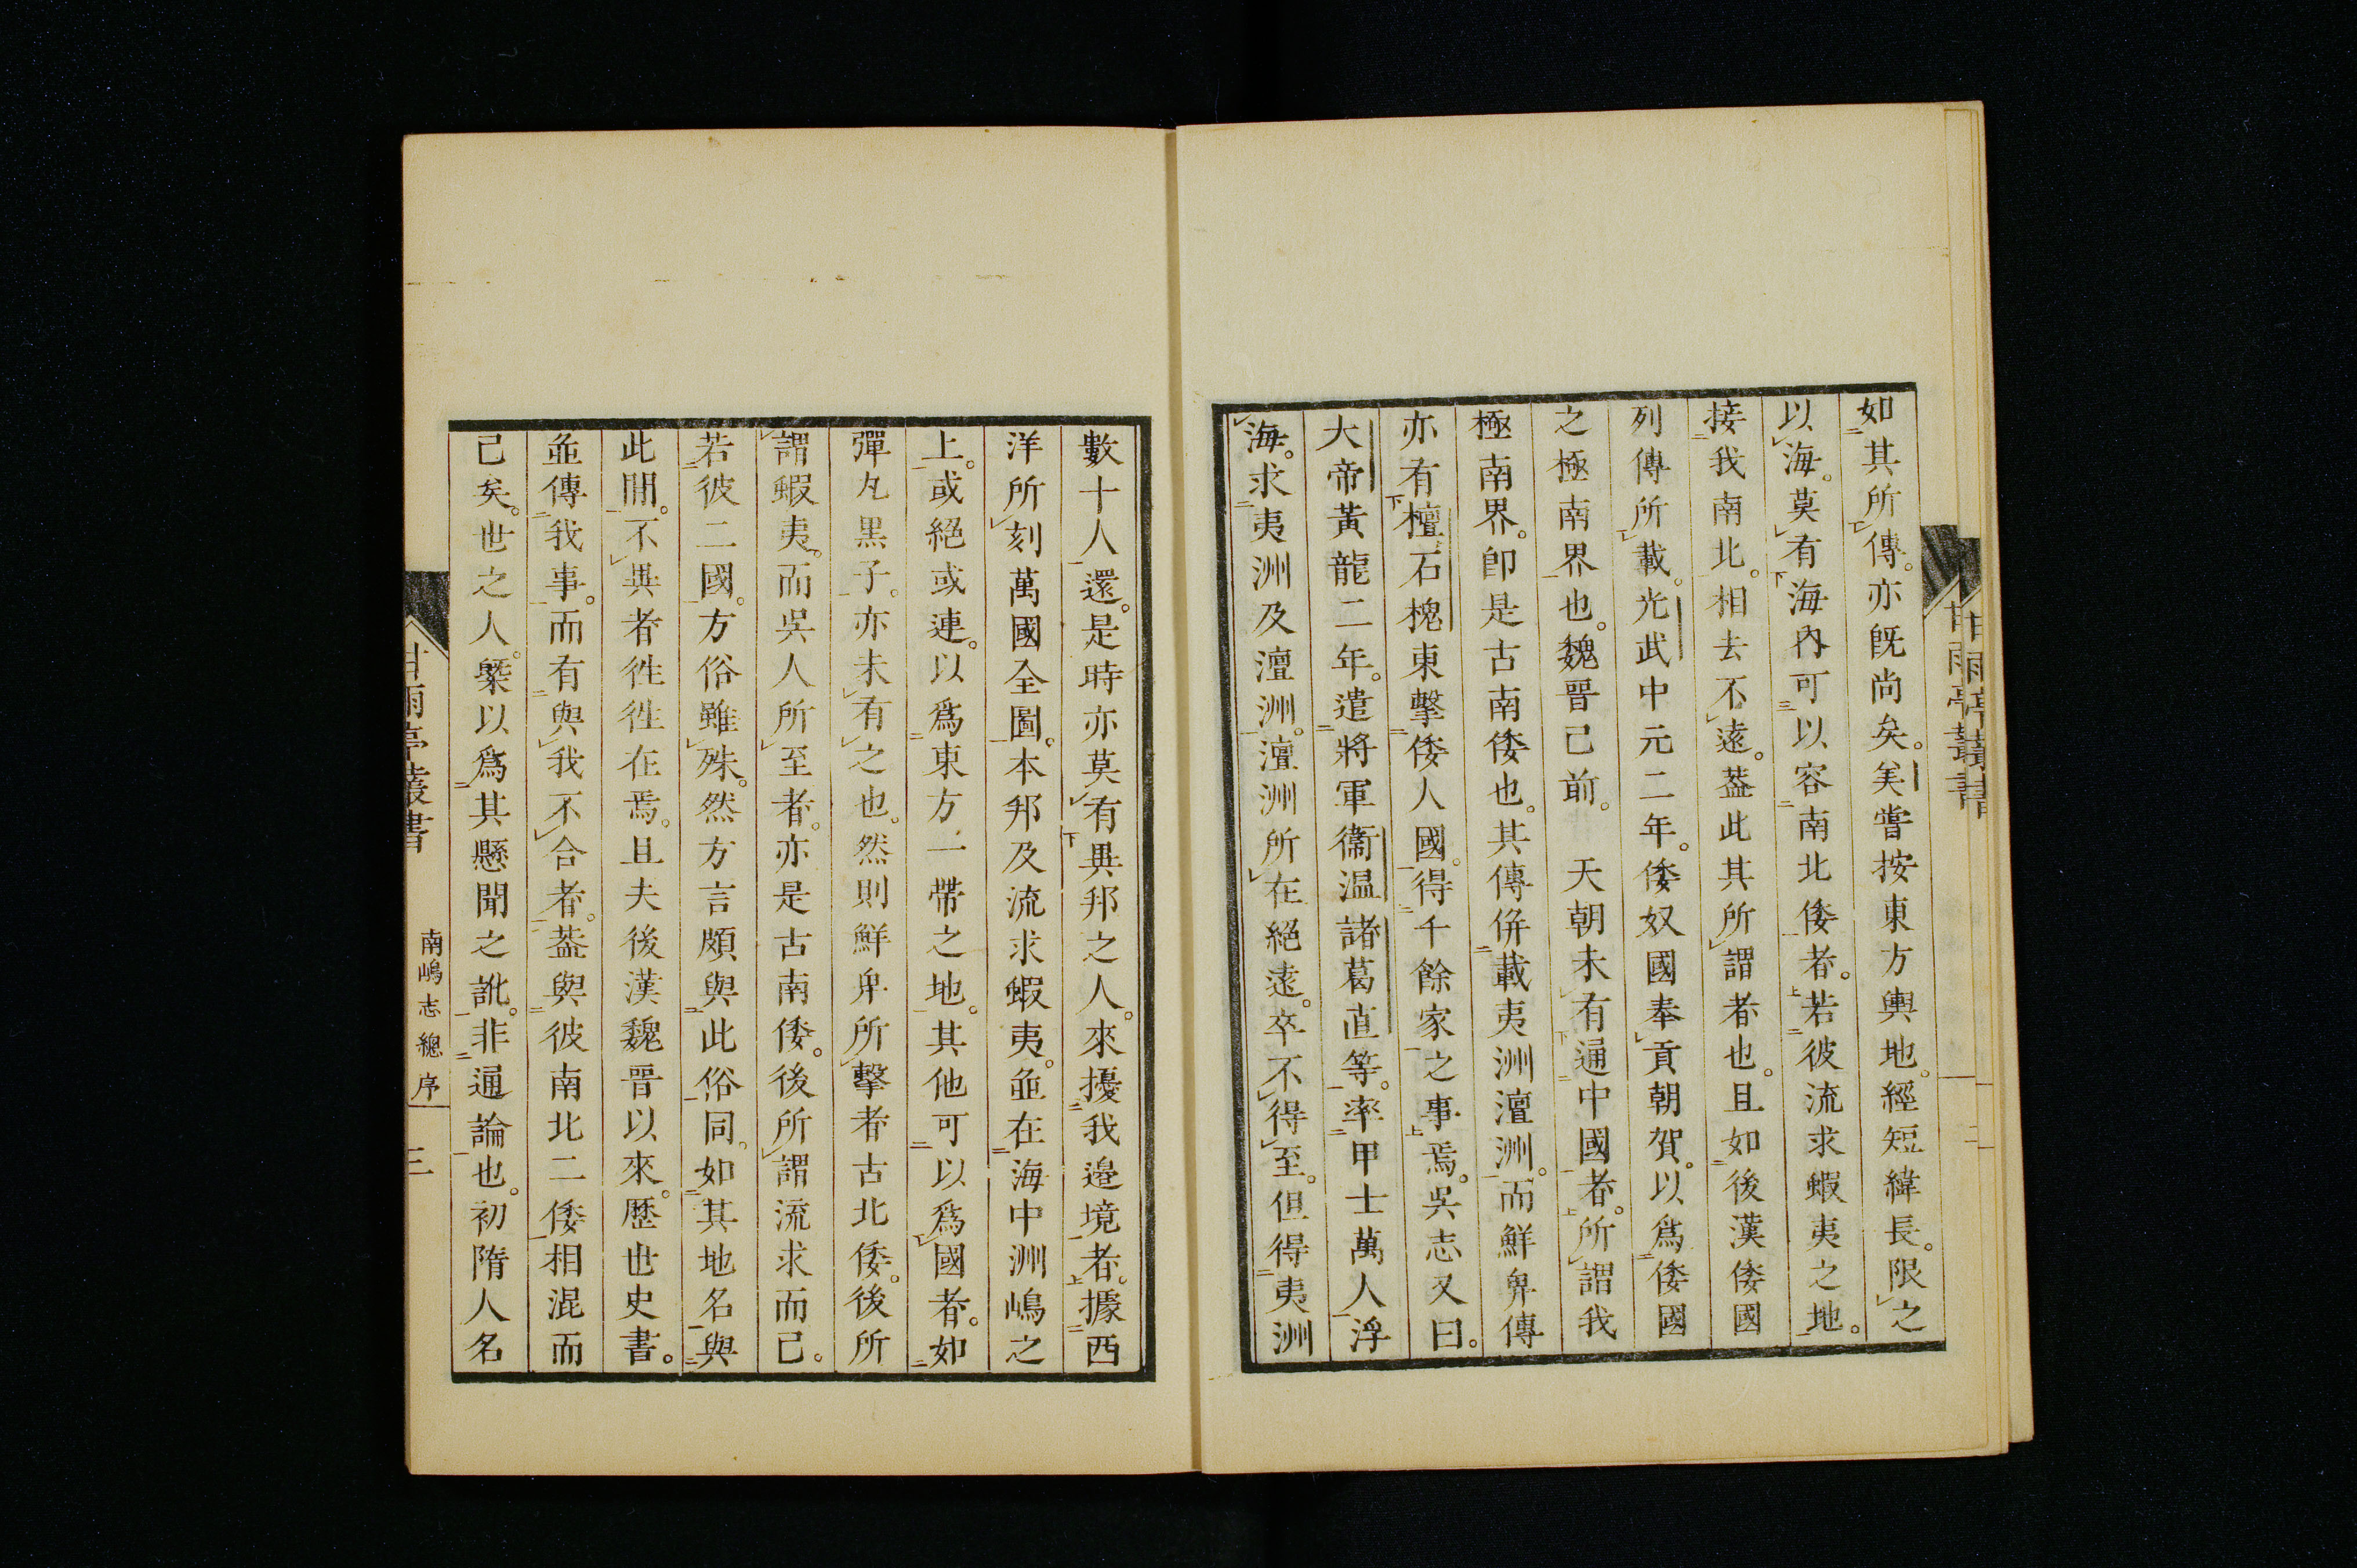 如其所傳。亦既尚矣。美嘗按東方輿地。經短緯長。限之
以海。莫有海內可以容南北倭者。若彼流求蝦夷之地。
接我南北。相去不遠。葢此其所謂者也。且如後漢倭國
列傳所載。光武中元二年。倭奴國奉貢朝賀。以爲倭國
之極南界也。魏晋已前。 天朝未有通中國者。所謂我
極南界。卽是古南倭也。其傳併載夷洲澶洲。而鮮卑傳
亦有檀石槐東擊倭人國。得千餘家之事焉。吳志又曰。
大帝黃龍二年。遣將軍衞温諸葛直等。率甲士萬人浮
海。求夷洲及澶洲。澶洲所在絕遠。卒不得至。但得夷洲
甘雨亭叢書
數十人還。是時亦莫有異邦之人。來擾我邊境者。據西
洋所刻萬國全圖。本邦及流求蝦夷。並在海中洲嶋之
上。或絕或連。以爲東方一帶之地。其他可以爲國者。如
彈丸黑子。亦未有之也。然則鮮卑所擊者古北倭。後所
謂蝦夷。而吳人所至者。亦是古南倭。後所謂流求而已。
若彼二國。方俗雖殊。然方言頗與此俗同。如其地名與
此間。不異者徃徃在焉。且夫後漢魏晋以來。歷世史書。
並傳我事。而有與我不合者。葢與彼南北二倭相混而
已矣。世之人。槩以爲其懸聞之訛。非通論也。初隋人名
甘雨亭叢書 南嶋志總序 三